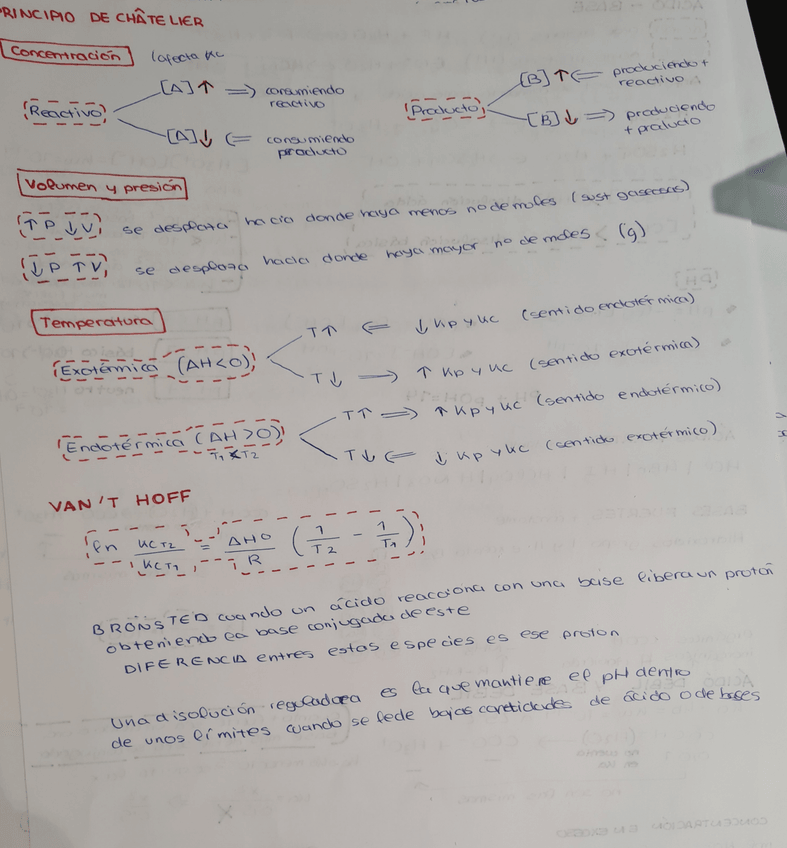 PRINCIPIO DE CHÂTELIER
Concentración (afecta KC
Reactivo
[A] ↑ ⇒ consumiendo reactivo
[A] ↓ ⇐ consumiendo producto
Producto
[B] ↑ ⇐ produciendo + reactivo
[B] ↓ ⇒ produciendo + producto
Volumen y presión
↑ P ↓ V se desplaza hacia donde haya menos no de moles (sust gaseosas)
↓ P ↑ V se desplaza hacia donde haya mayor no de moles. (g)
Temperatura
Exotérmica (ΔH<0)
T↑ ⇐ ↓ Kp y KC (sentido endotérmica)
T↓ ⇒ ↑ Kp y KC (sentido exotérmica)
Endotérmica (ΔH>0)
T↑ ⇒ ↑ Kp y KC (sentido endotérmico)
T↓ ⇐ ↓ Kp y KC (sentido exotérmico)
T1 < T2
VAN'T HOFF
ln KCT2 / KCT1 = ΔHO / R (1/T2 - 1/T1)
BRÖNSTED cuando un ácido reacciona con una base libera un protón
obteniendo la base conjugada de este
DIFERENCIA entres estas especies es ese proton
Una disolución reguladora es la que mantiene el pH dentro
de unos límites cuando se le de bajas cantidades de ácido o de bases